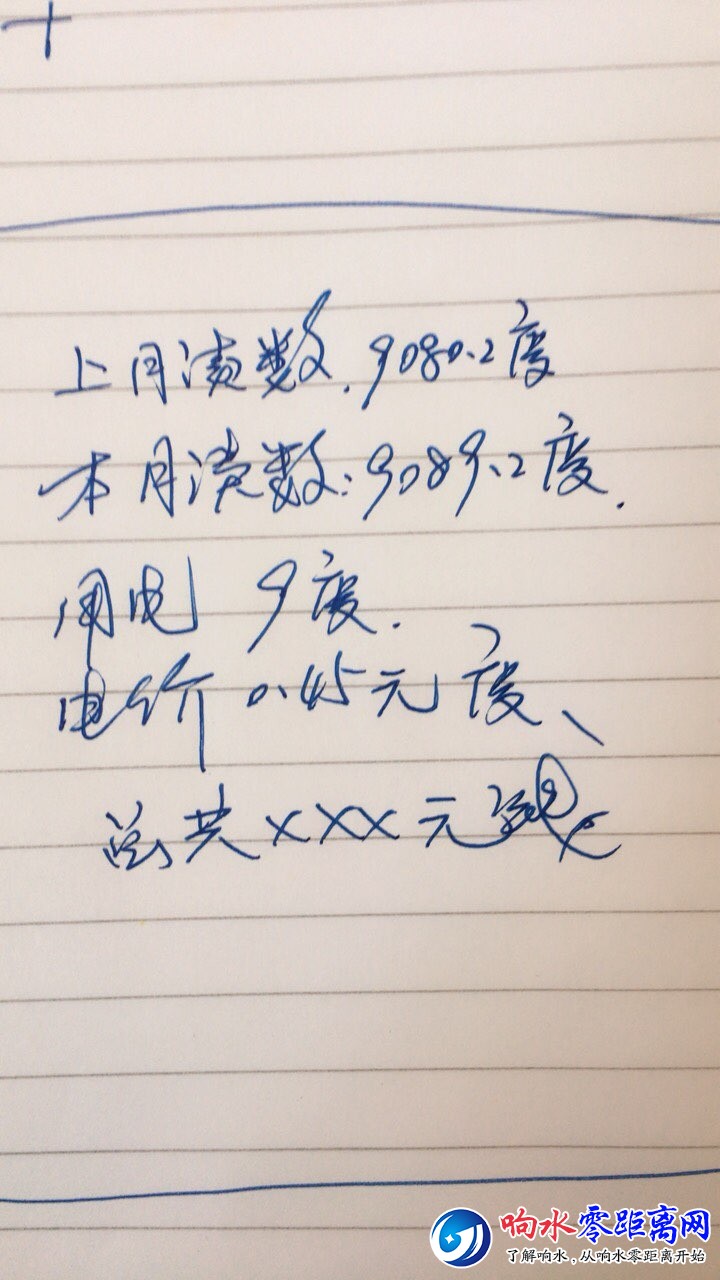 十
上月读数.9080.2度
本月读数:9089.2度.
用电 9度.
电价 0.45元 度、
总共XXX元
响水零距离网
了解响水,从响水零距离开始